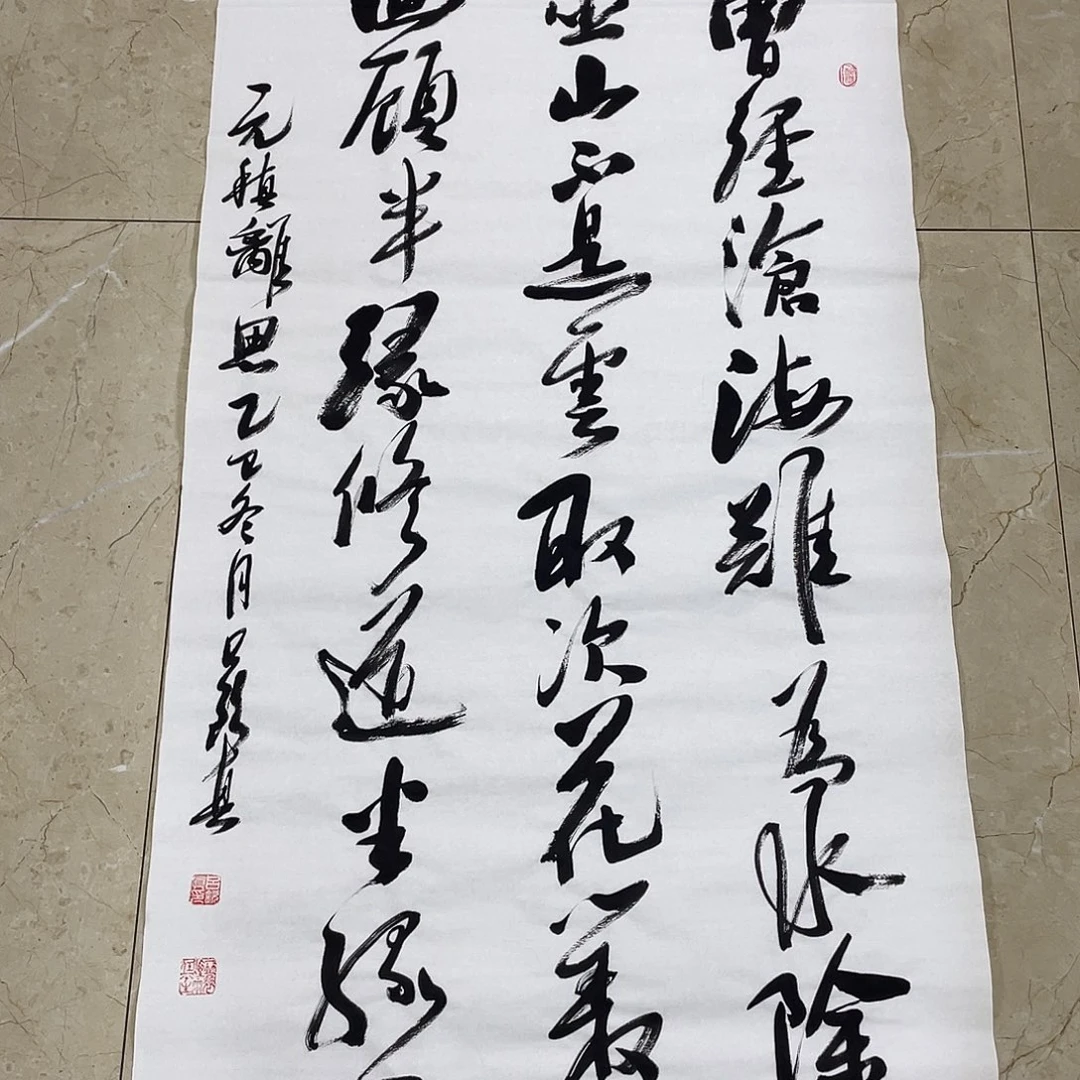 曾經滄海難為水除
巫山不是雲取次花叢
迴顧半緣修道半緣
元稹離思乙巳冬月